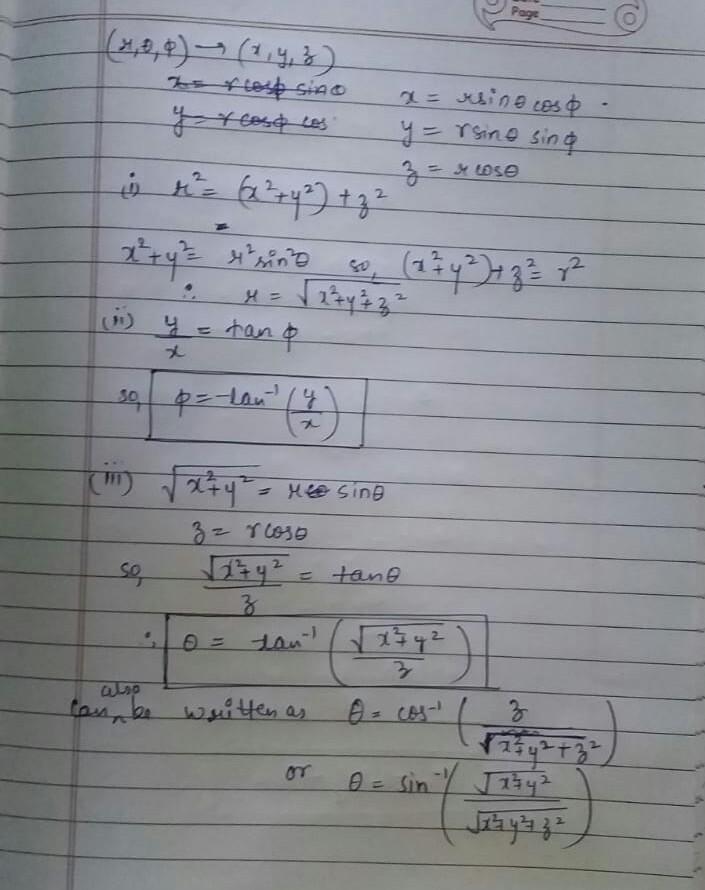 Page
(r,θ,φ) → (x,y,z)
x = r cosφ sinθ
x = r sinθ cosφ .
y = r cosφ cos
y = r sinθ sinφ
z = r cosθ
(i) r² = (x²+y²) + z²
=
x²+y² = r² sin²θ so, (x²+y²)+z² = r²
∴ r = √(x²+y²+z²)
(ii) y/x = tan φ
so, φ = tan⁻¹(y/x)
(iii) √(x²+y²) = r sinθ
z = r cosθ
so, √(x²+y²)/z = tanθ
∴ θ = tan⁻¹(√(x²+y²)/z)
also
Can be written as θ = cos⁻¹(z/√(x²+y²+z²))
or θ = sin⁻¹(√(x²+y²)/√(x²+y²+z²))